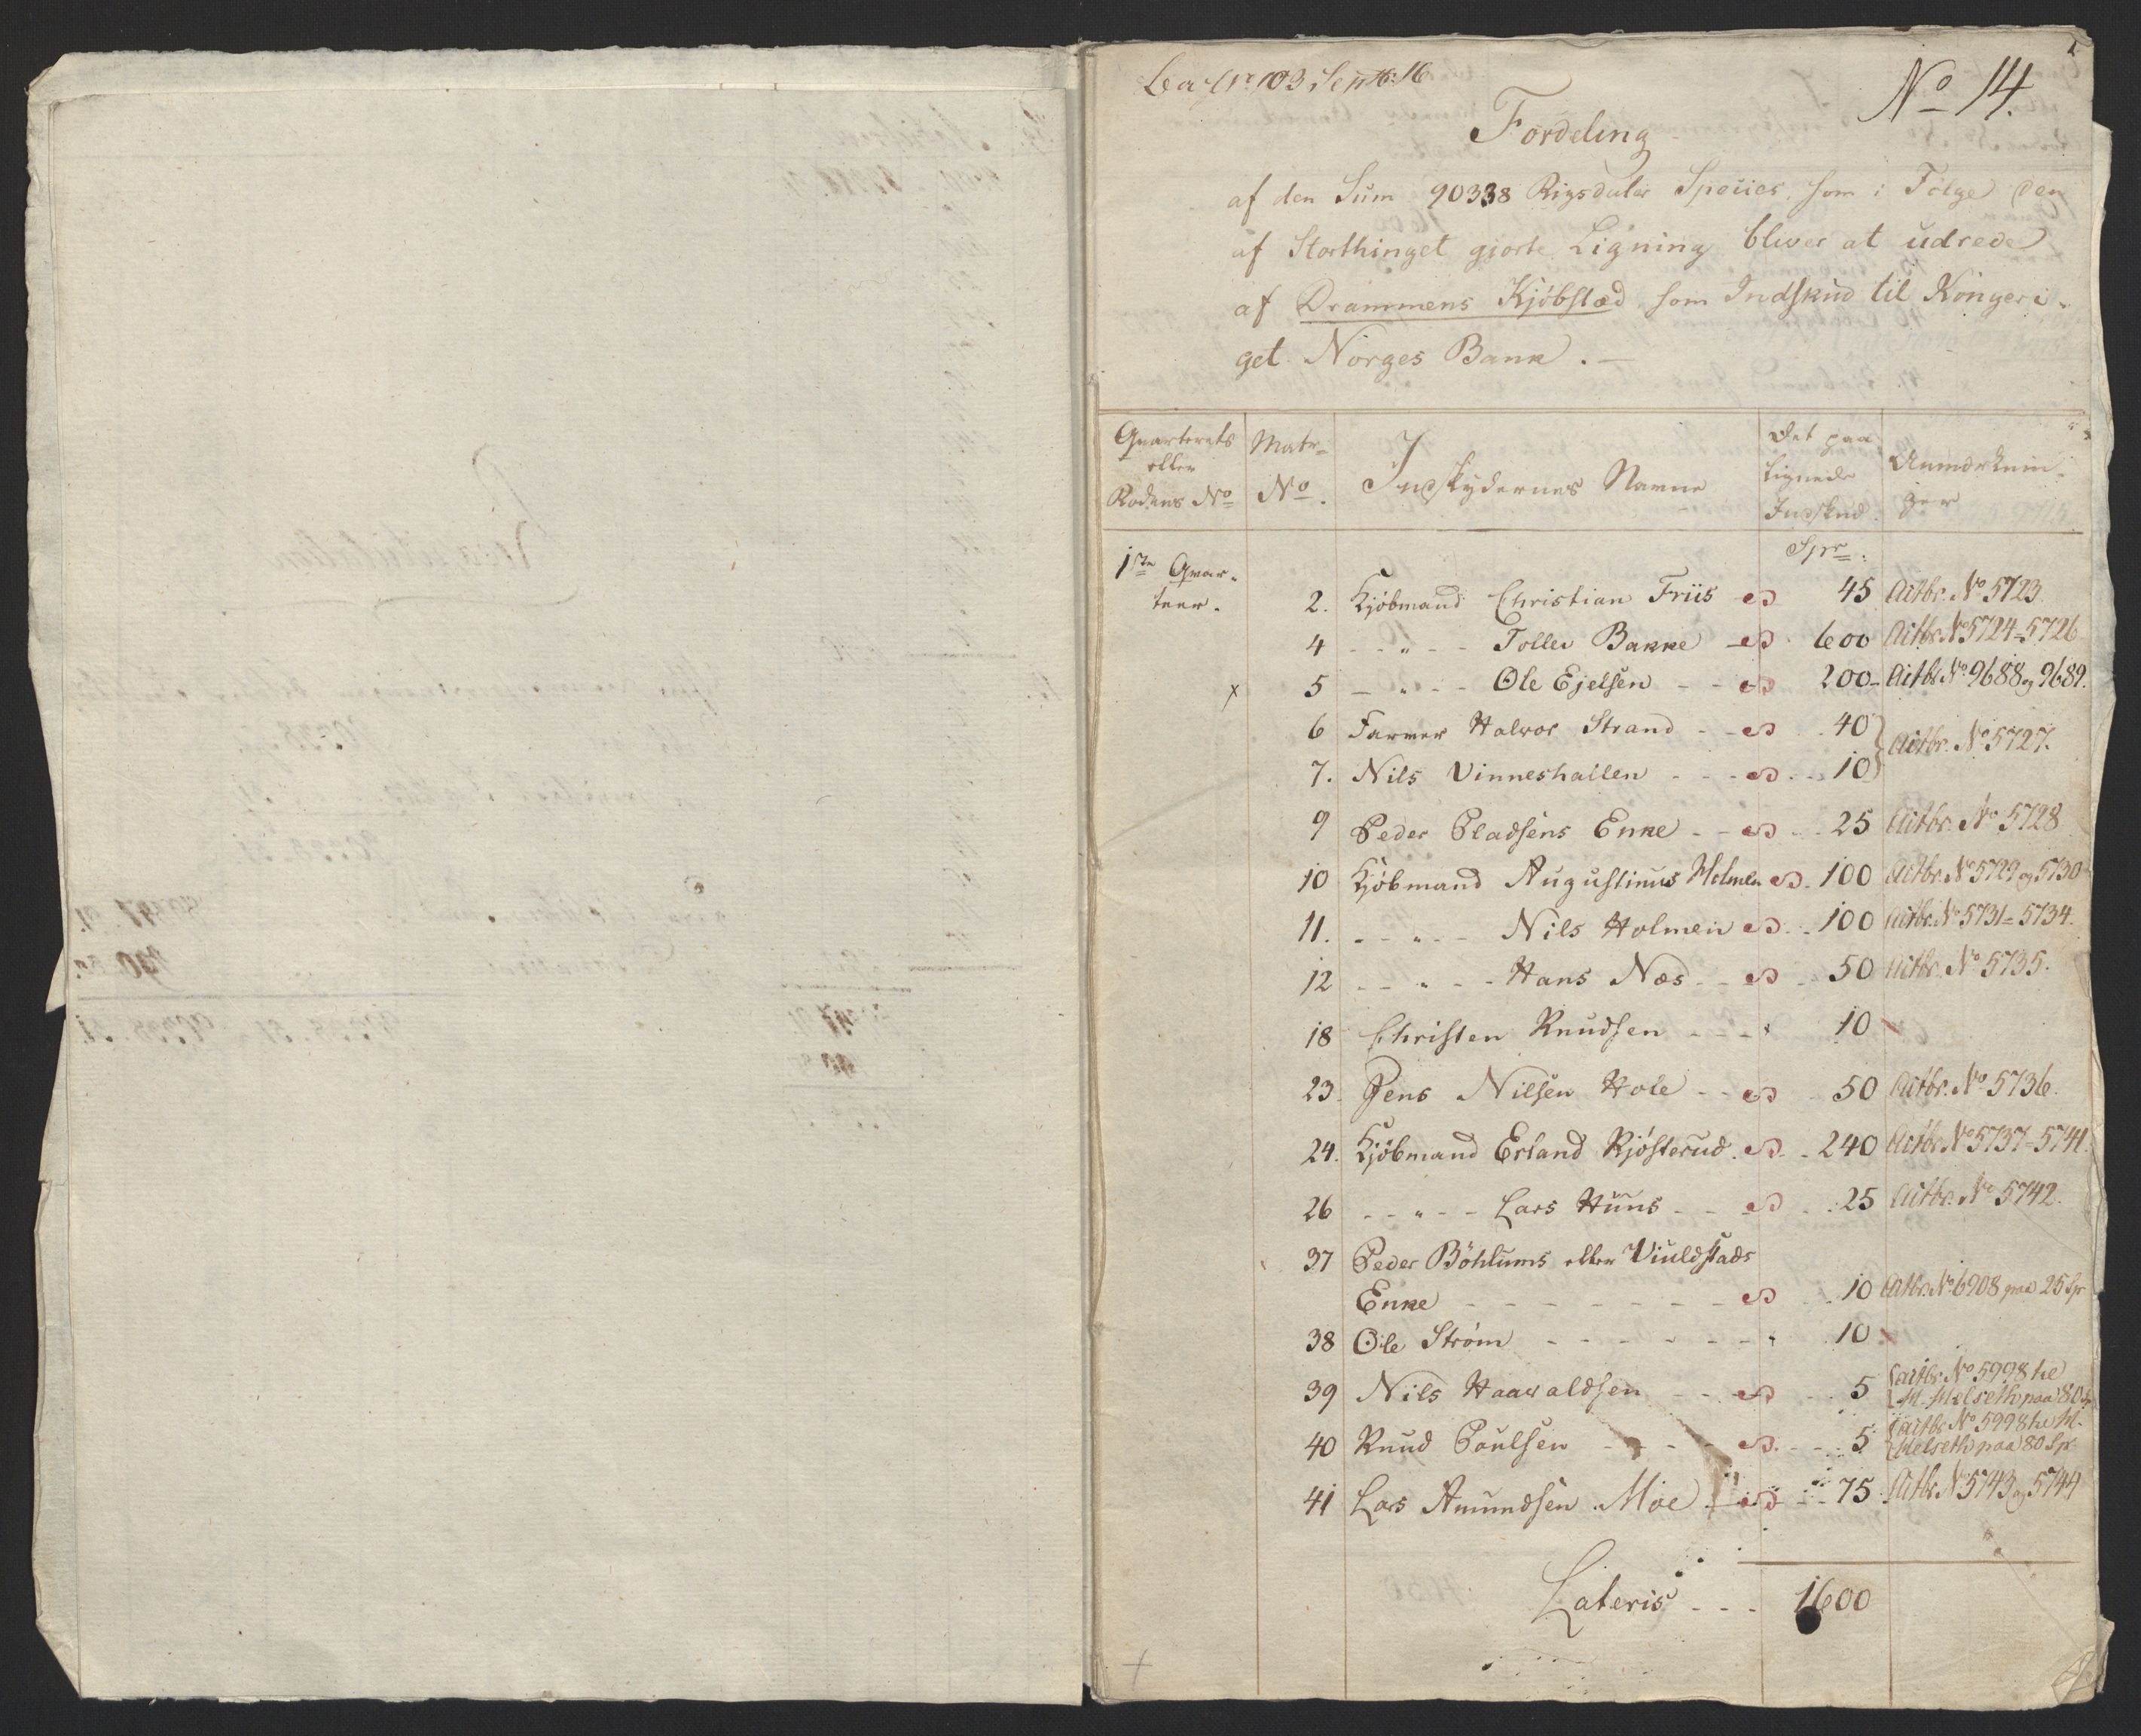 No 14.
Fordeling
af den Sum 90338 Rigsdaler Species, som i Følge den
af Storthinget gjorte Ligning bliver at udrede
af Drammens Kjøbstæd som Indskud til Kongeri-
get Norges Bank. —
Qvarterets eller Rodens No | Matr. No. | Indskydernes Navne | Det paa lignede Indskud | Anmærknin- ger
Spr.
1ste Qvar- teer. 2. Kjøbmand Christian Friis 45 Actbr. No 5723.
4 - - " - - Tollev Bakke 600 Actbr. No 5724 = 5726
x 5 - " - - Ole Ejelsen - - 200 - Actbr. No 9688 og 9689.
6 Farver Halvor Strand - - 40 } Actbr. No 5727.
7. Nils Vinneshallen - - - 10
9 Peder Pladsens Enke - - 25 Actbr. No 5728
10 Kjøbmand Augustinus Holmen 100 Actbr. No 5729 og 5730
11. - - " - - Nils Holmen 100 Actbr. No 5731 = 5734.
12 - - " - - Hans Næs - - 50 Actbr. No 5735.
18 Christen Knudsen - - - 10
23. Jens Nilsen Hole - - 50 Actbr. No 5736.
24. Kjøbmand Erland Kjøsterud 240 Actbr. No 5737 = 5741.
26 - - " - - Lars Huus - - 25 Actbr. No 5742.
37 Peder Böhlums eller Viuldstads
Enke - - - - - - - 10 Actbr. No 6908 paa 25 Sp
38 Ole Strøm - - - - - - 10
39 Nils Haavaldsen - - - 5 { actbr. No 5998 til M. Melseth paa 80 Sp
40 Knud Poulsen - - - - 5 { actbr. No 5998 til M. Melseth paa 80 Sp
41 Lars Amundsen Moe - - 75 Actbr. No 5743 og 5744
Lateris - - - 1600